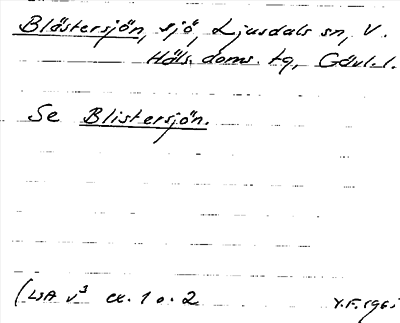 Blästersjön, sjö, Ljusdals sn, V.
Häls. doms. tg, Gävl. l.
Se Blistersjön.
(LSA v3 ca. 1 o. 2
Y.F. 1965